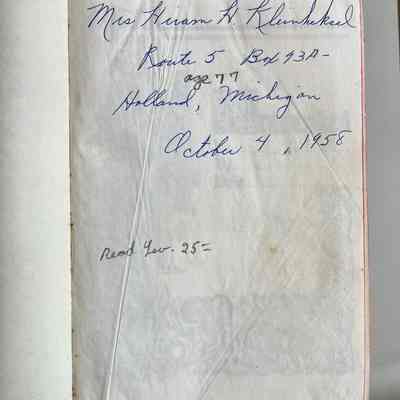 Mrs Hiram H Kleinheksel
Route 5 Box 93A-
age 77
Holland, Michigan
October 4, 1958
Read Lev. 25=